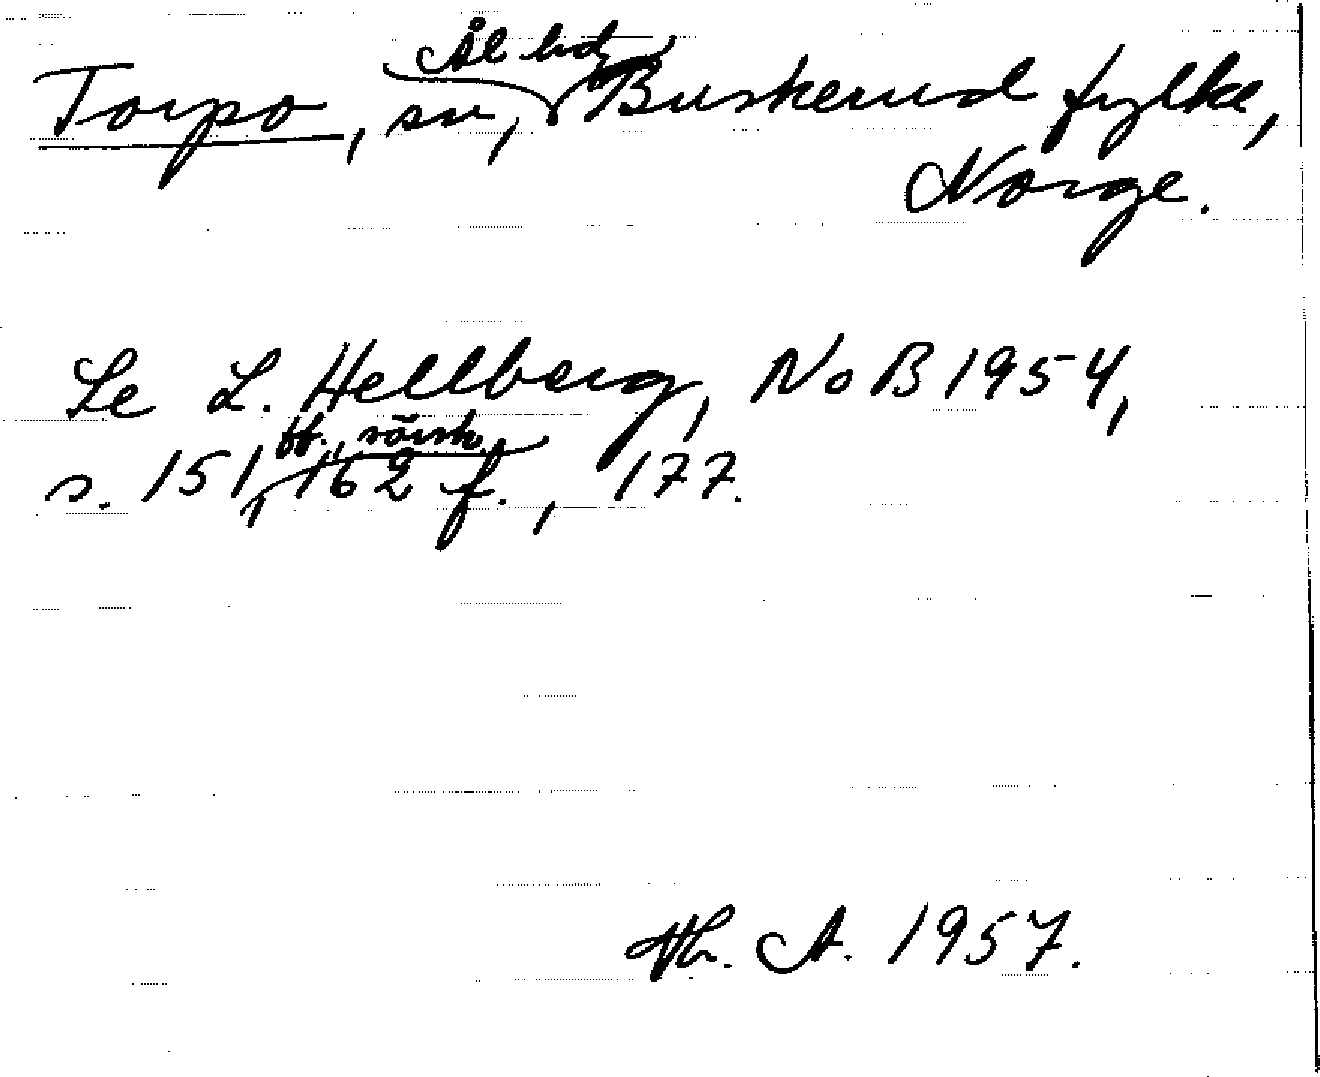 Torpo, sn, Ål hd, Buskerud fylke,
Norge.
Se L. Hellberg, NoB 1954,
s. 151 ff., särsk. 162 f., 177.
Th. A. 1957.